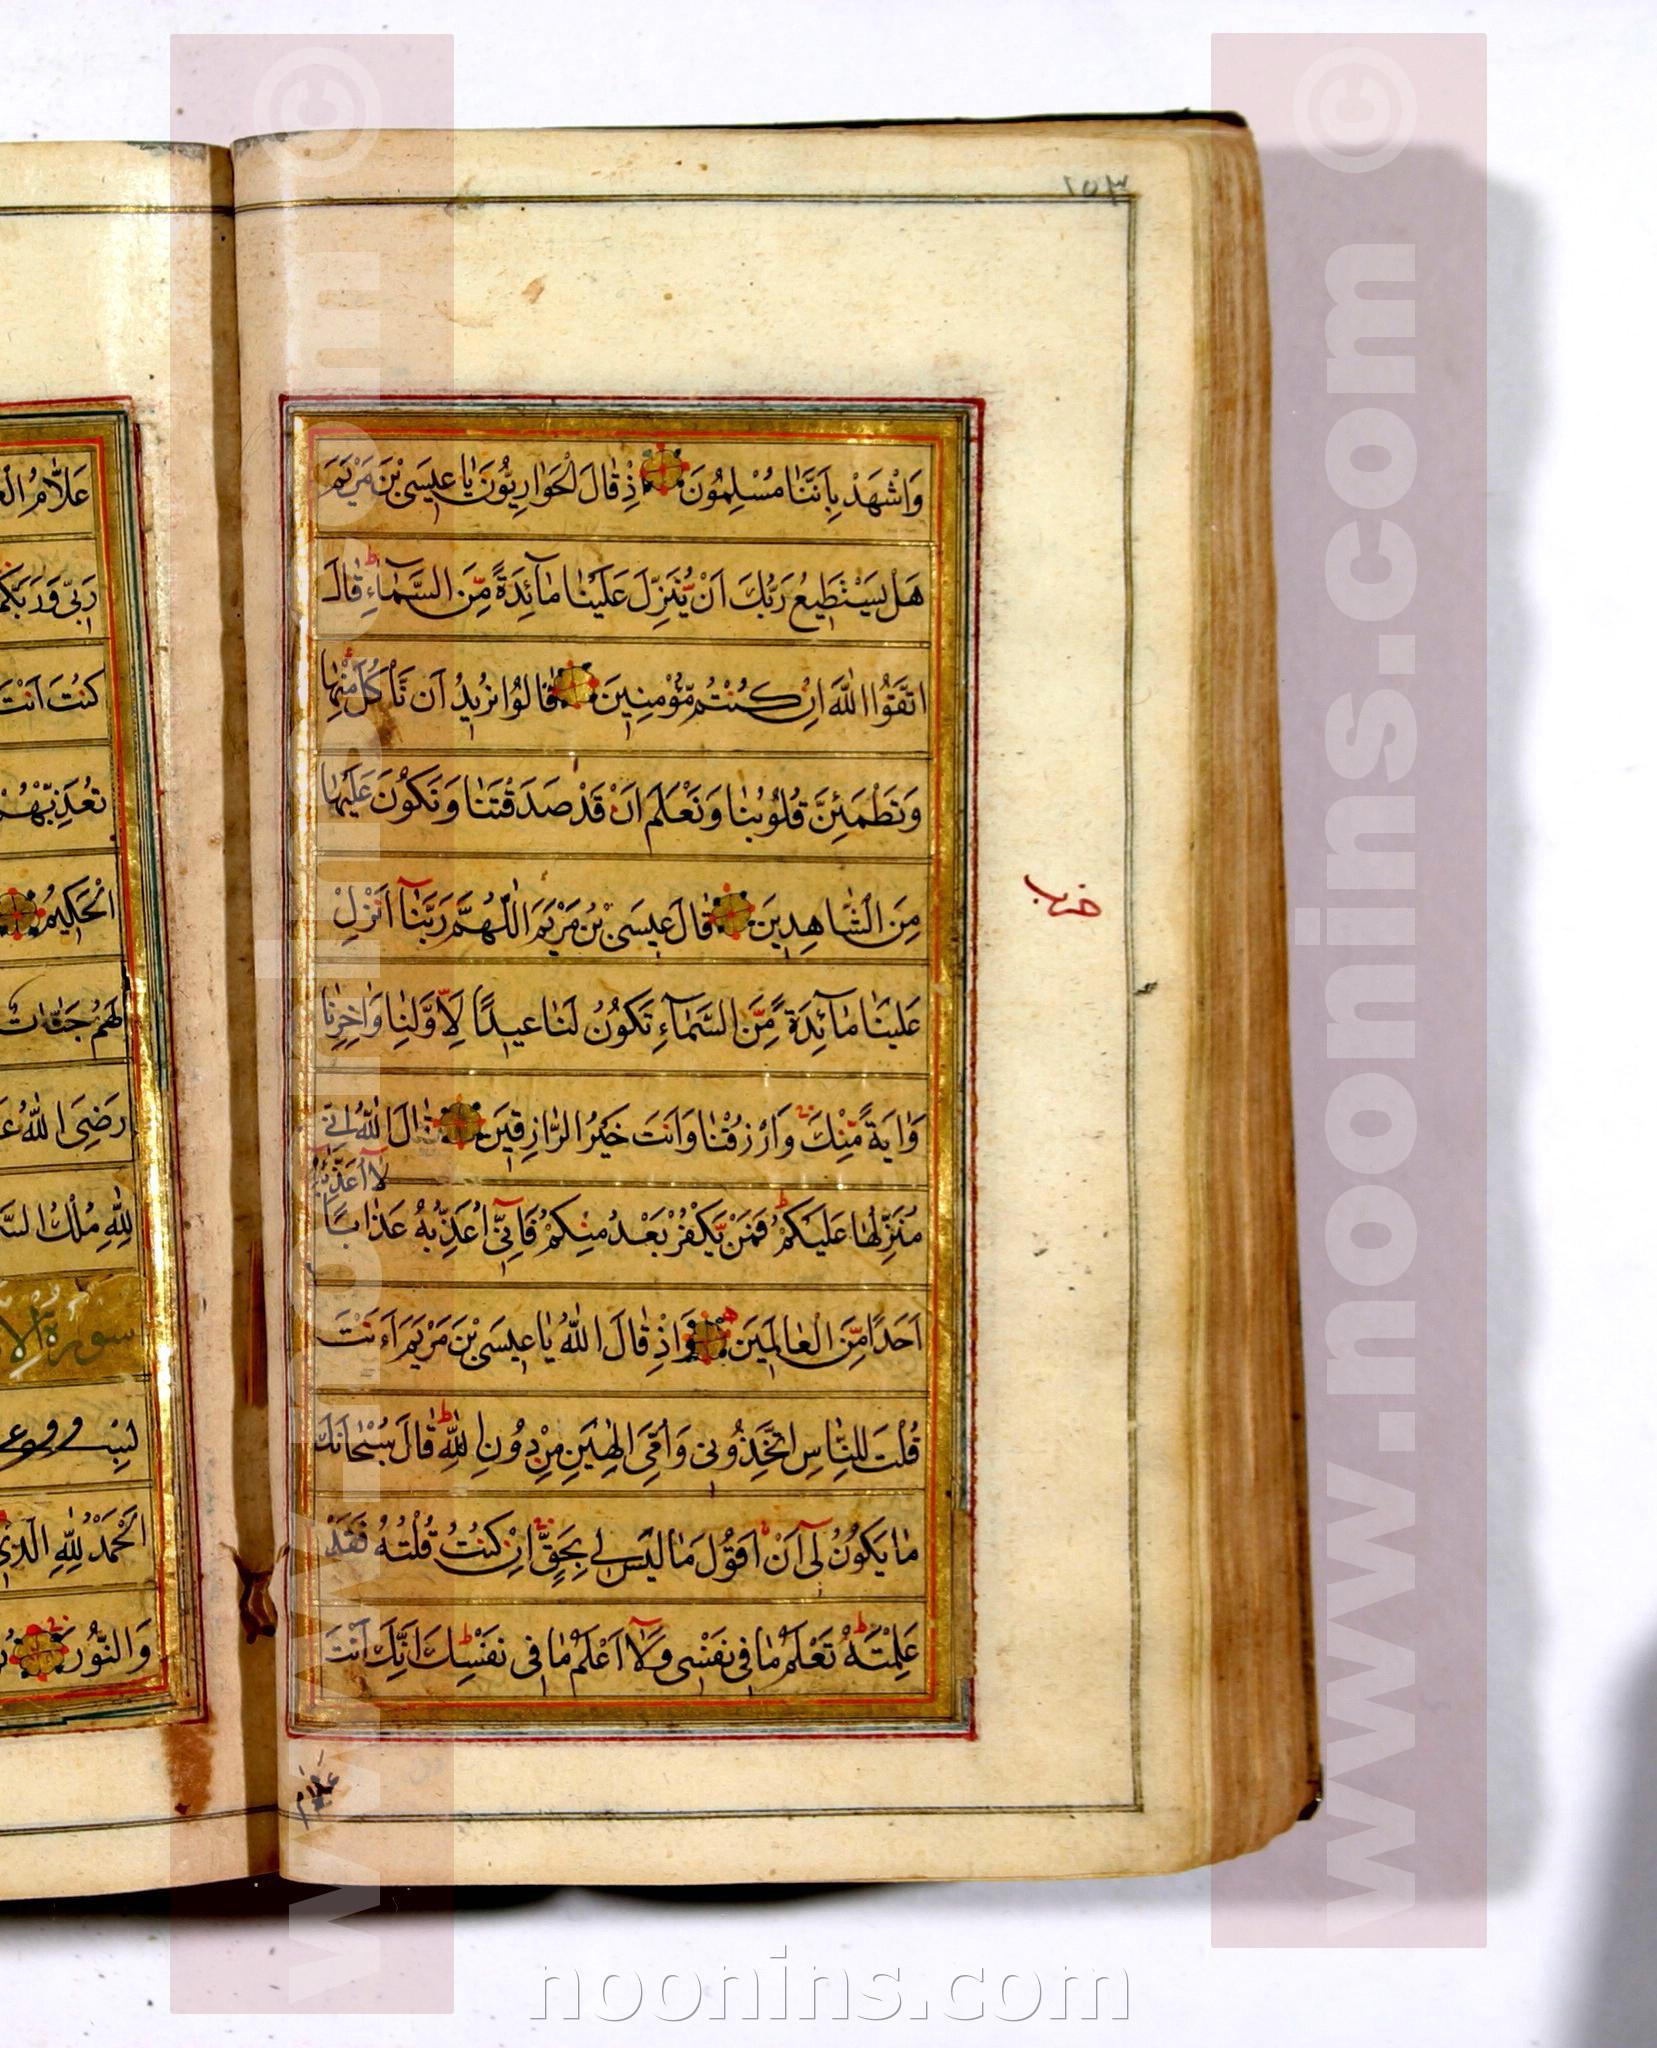 ١٥٣
وَاشْهَدْ بِاَنَّنَا مُسْلِمُونَ اِذْ قَالَ الْحَوَارِيُّونَ يَا عِيسَى بْنَ مَرْيَمَ
هَلْ يَسْتَطِيعُ رَبُّكَ اَنْ يُنَزِّلَ عَلَيْنَا مَآئِدَةً مِّنَ السَّمَآءِ ط قَالَ
اتَّقُوا اللّٰهَ اِنْ كُنْتُمْ مُّؤْمِنِينَ قَالُوا نُرِيدُ اَنْ نَّأْكُلَ مِنْهَا
وَتَطْمَئِنَّ قُلُوبُنَا وَنَعْلَمَ اَنْ قَدْ صَدَقْتَنَا وَنَكُونَ عَلَيْهَا
مِنَ الشَّاهِدِينَ قَالَ عِيسَى بْنُ مَرْيَمَ اللّٰهُمَّ رَبَّنَآ اَنْزِلْ
حزب
عَلَيْنَا مَآئِدَةً مِّنَ السَّمَآءِ تَكُونُ لَنَا عِيدًا لِاَوَّلِنَا وَاٰخِرِنَا
وَاٰيَةً مِّنْكَ وَارْزُقْنَا وَاَنْتَ خَيْرُ الرَّازِقِينَ قَالَ اللّٰهُ اِنِّي
لَآ اُعَذِّبُهُ
مُنَزِّلُهَا عَلَيْكُمْ ط فَمَنْ يَّكْفُرْ بَعْدُ مِنْكُمْ فَاِنِّيٓ اُعَذِّبُهُ عَذَابًا
اَحَدًا مِّنَ الْعَالَمِينَ وَاِذْ قَالَ اللّٰهُ يَا عِيسَى بْنَ مَرْيَمَ ءَاَنْتَ
قُلْتَ لِلنَّاسِ اتَّخِذُونِي وَاُمِّيَ اِلٰهَيْنِ مِنْ دُونِ اللّٰهِ ط قَالَ سُبْحَانَكَ
مَا يَكُونُ لِيٓ اَنْ اَقُولَ مَا لَيْسَ لِي بِحَقٍّ اِنْ كُنْتُ قُلْتُهُ فَقَدْ
عَلِمْتَهُ ط تَعْلَمُ مَا فِي نَفْسِي وَلَآ اَعْلَمُ مَا فِي نَفْسِكَ ط اِنَّكَ اَنْتَ
عَلَّامُ
عَلَّامُ
رَبِّي وَرَبَّكُمْ
كُنْتَ اَنْتَ
تُعَذِّبْهُمْ
الْحَكِيمُ
لَهُمْ جَنَّاتٌ
رَضِيَ اللّٰهُ
لِلّٰهِ مُلْكُ
سورة
اَلْحَمْدُ لِلّٰهِ الَّذِي
وَالنُّورَ
© www.noonins.com
© www.noonins.com
noonins.com